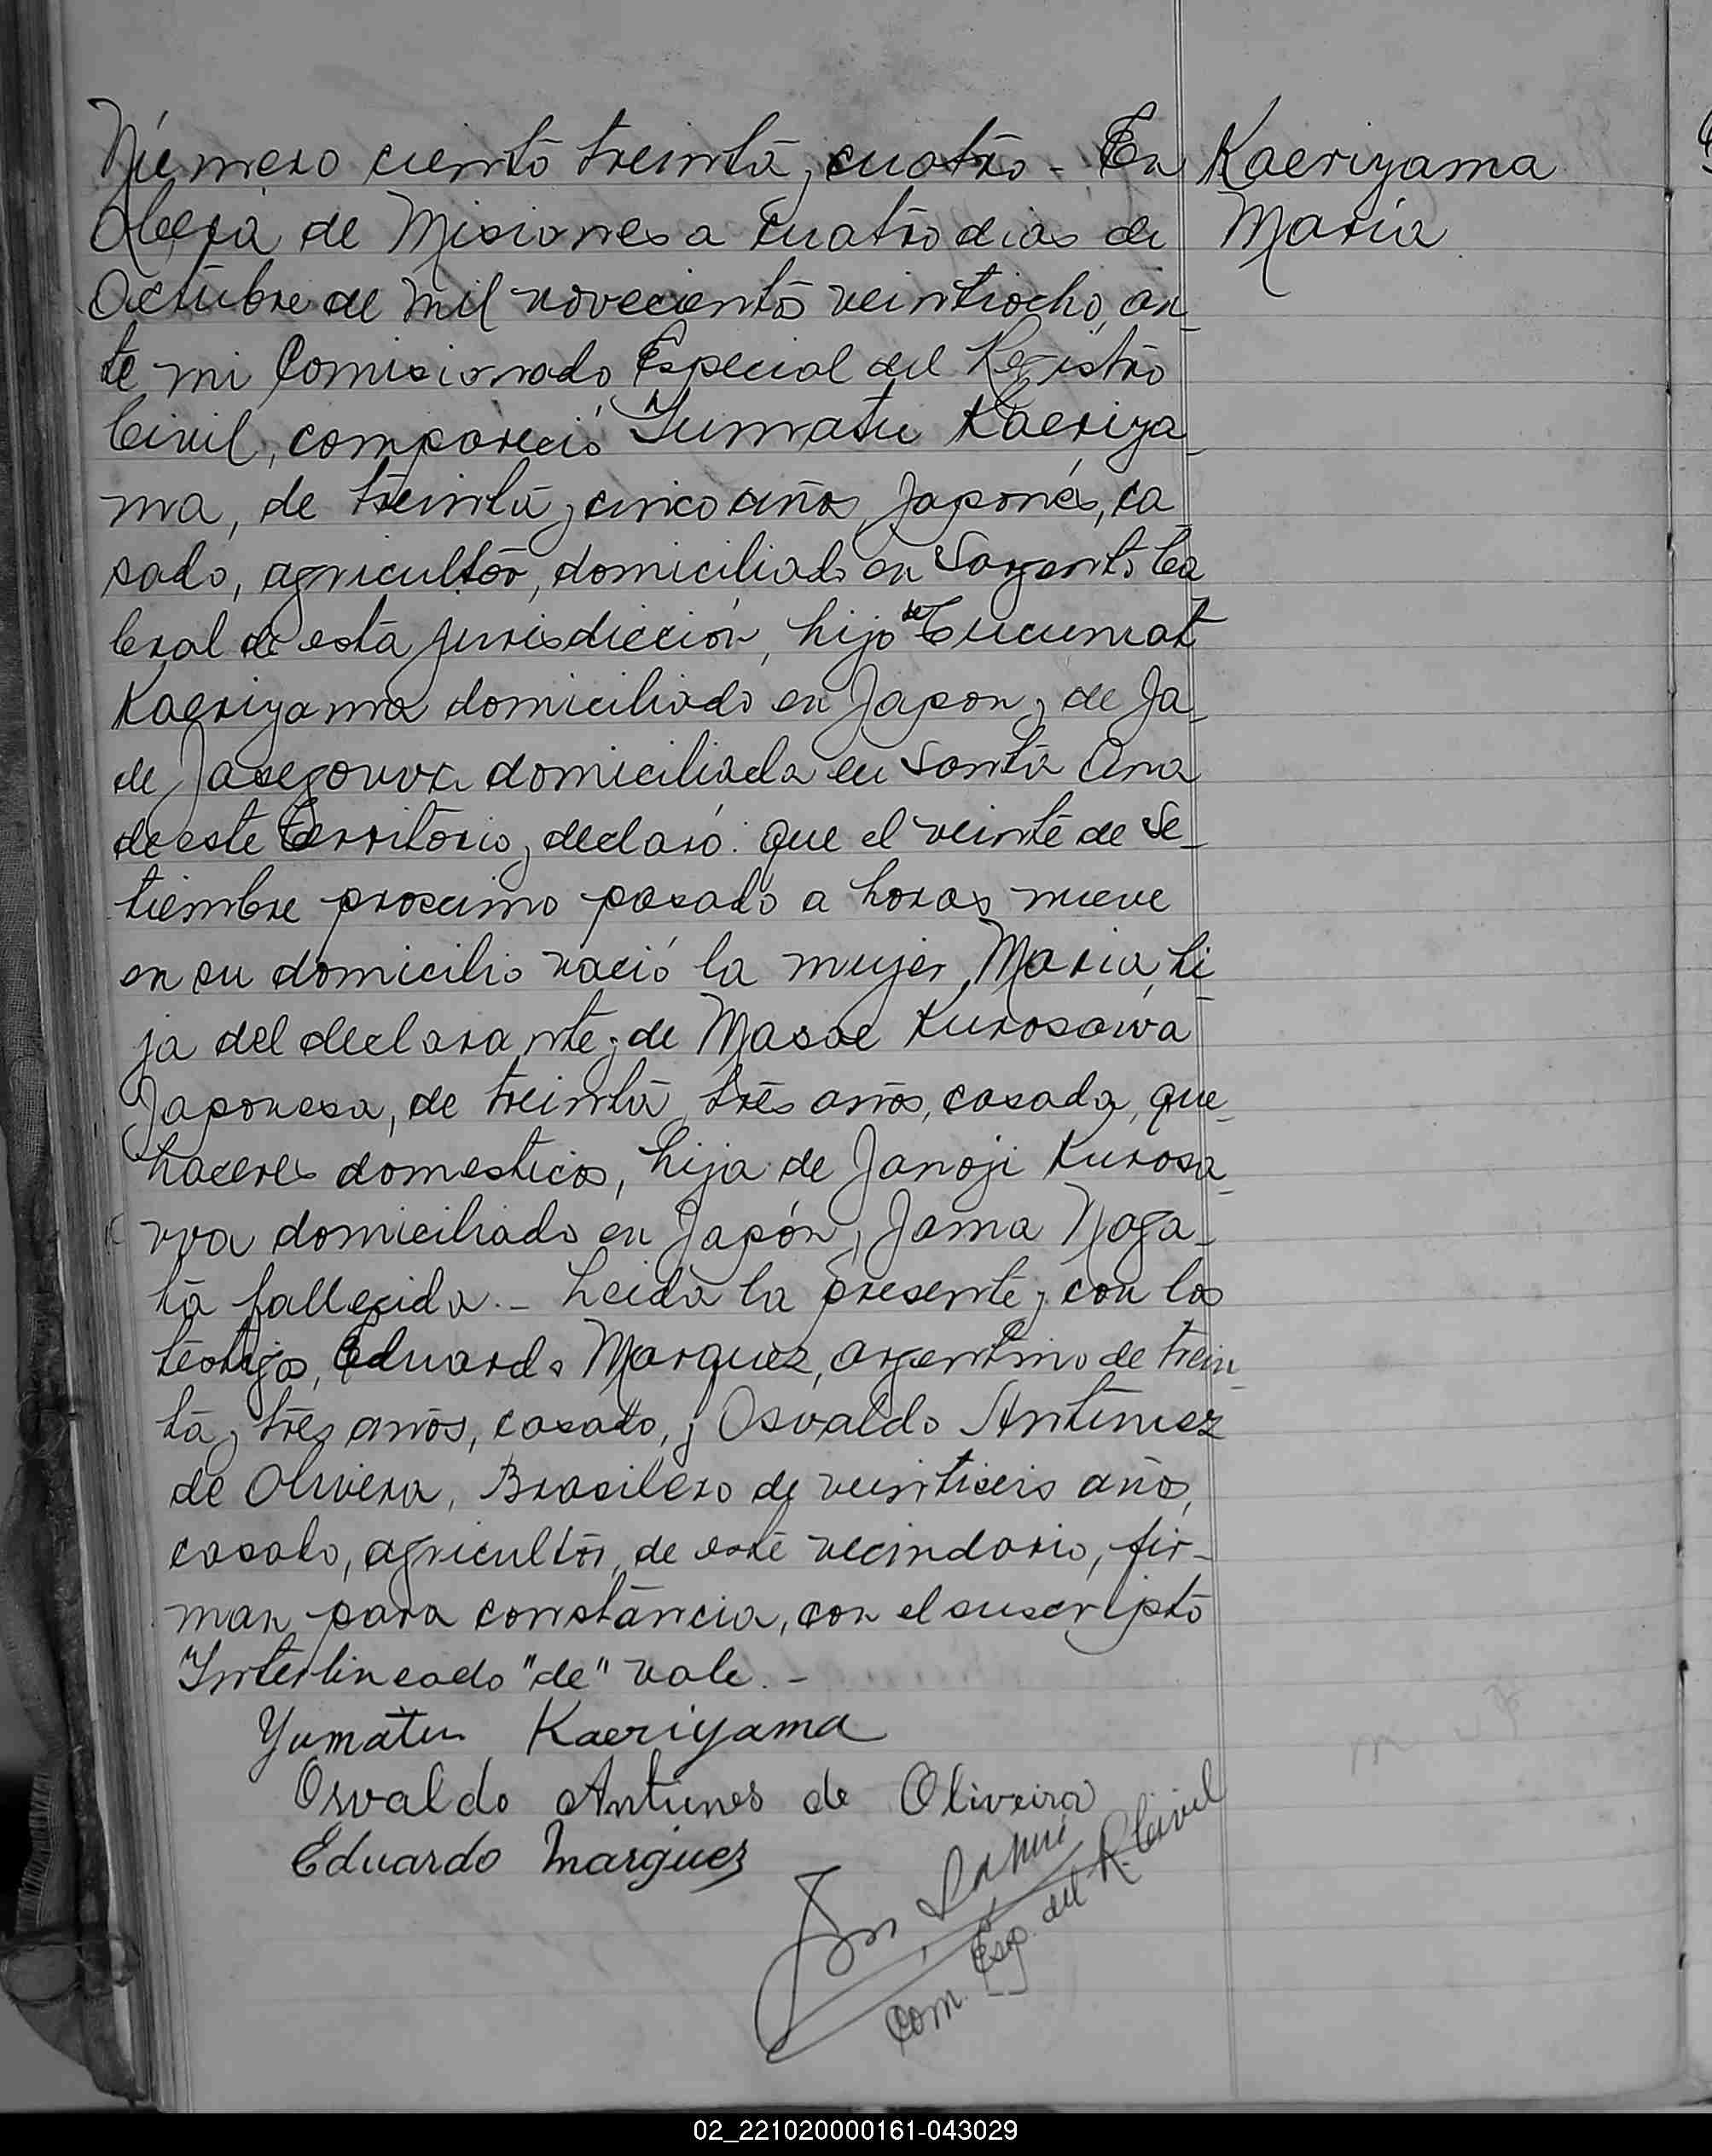 Número ciento treinta y cuatro - En
Oberá de Misiones a cuatro dias de
Octubre de mil novecientos veintiocho, an-
te mi Comisionado Especial del Registro
Civil, compareció Yumatu Kaeriya-
ma, de treinta y cinco años, Japonés, ca
sado, agricultor, domiciliado en Sargento Ca
bral de esta jurisdicción, hijo de Cucumat
Kaeriyama domiciliado en Japon y de Ja-
de domiciliada en Santa Ana
de este territorio, declaró: que el veinte de Se-
tiembre proscimo pasado a horas nueve
en su domicilio nació la mujer, Maria, hi-
ja del declarante y de Masae Kurosawa
Japonesa, de treinta y tres años, casada, que-
haceres domesticos, hija de Janoji Kurosa-
wa domiciliado en Japón y Jama Naga-
ta fallecida.- Leida la presente y con los
testigos, Eduardo Marquez, argentino de trein-
ta y tres años, casado, y Osvaldo Antunez
de Olivera, Brasilero de veintiseis años,
casado, agricultor, de este vecindario, fir-
man para constancia, con el suscripto
Interlineado "de" vale.-
Yumatu Kaeriyama
Osvaldo Antunes de Oliveira
Eduardo Marquez
Com. Esp. del R. Civil
Kaeriyama
Maria
02_221020000161-043029